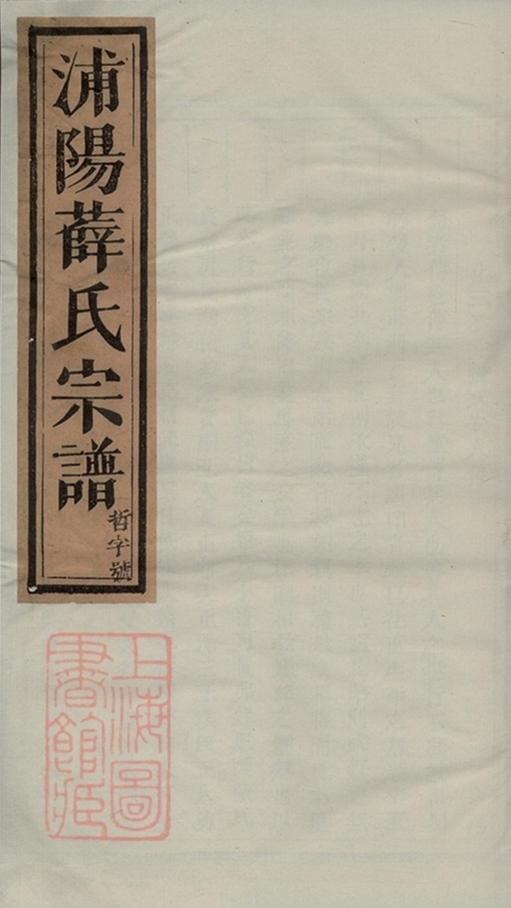 浦陽薛氏宗譜
哲字號
上海圖
書館藏